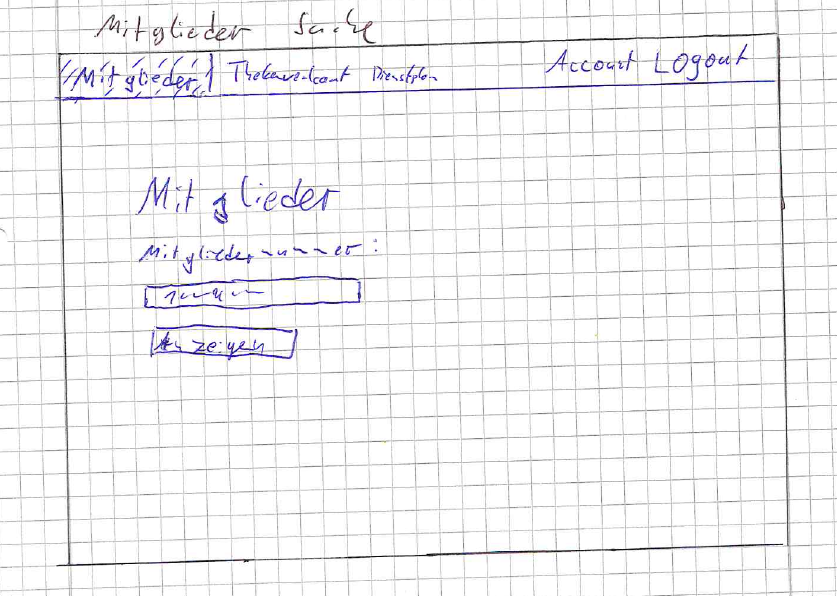 Mitglieder Suche
Mitglieder Dienstplan Account Logout
Mitglieder
Mitgliedernummer:
Anzeigen